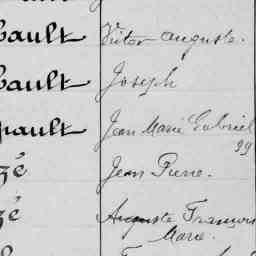 cault Victor Auguste.
cault Joseph
pault Jean Marie Gabriel
99
zé Jean Pierre.
zé Auguste François
Marie.